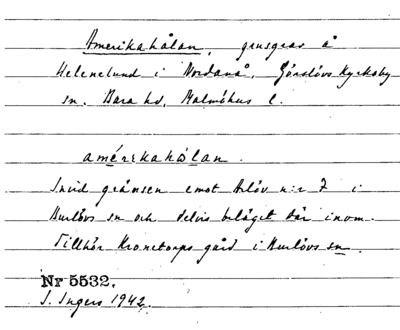 Amerikahålan, grusgrav å
Helenelund i Nordanå, Görslövs Kyrkoby
sn. Bara hd, Malmöhus l.
amérikahòlan.
Invid gränsen emot Arlöv n:r 7 i
Burlövs sn och delvis beläget där inom.
Tillhör Kronetorps gård i Burlövs sn.
Nr 5532.
I. Ingers 1942.